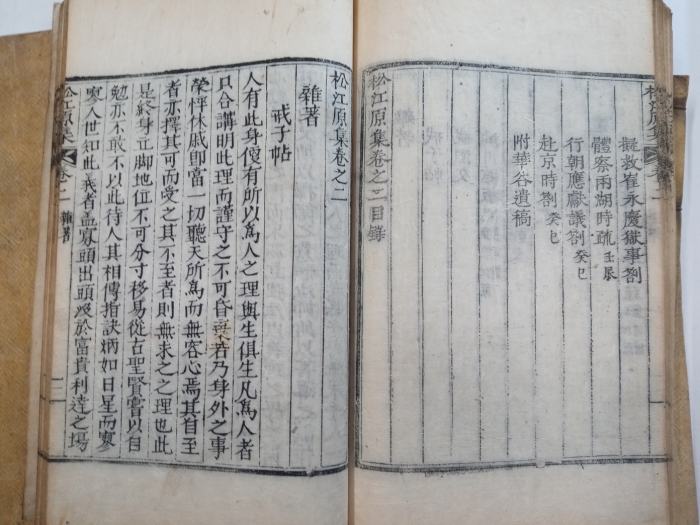 擬救崔永慶獄事劄
體察兩湖時疏 壬辰
行朝應獻議劄 癸巳
赴京時劄 癸巳
附華谷遺稿
松江原集卷之二目錄
松江原集卷之二
雜著
戒子帖
人有此身便有所以爲人之理與生俱生凡爲人者
只合講明此理而謹守之不可昏棄若乃身外之事
榮悴休戚卽當一切聽天所爲而無容心焉其自至
者亦擇其可而受之其不至者則無求之之理也此
是終身立脚地位不可分寸移易從古聖賢嘗以自
勉亦不敢不以此待人其相傳指訣炳如日星而寥
寥人世知此義者盖寡頭出頭沒於富貴利達之場
松江原集 卷之二 雜著 二